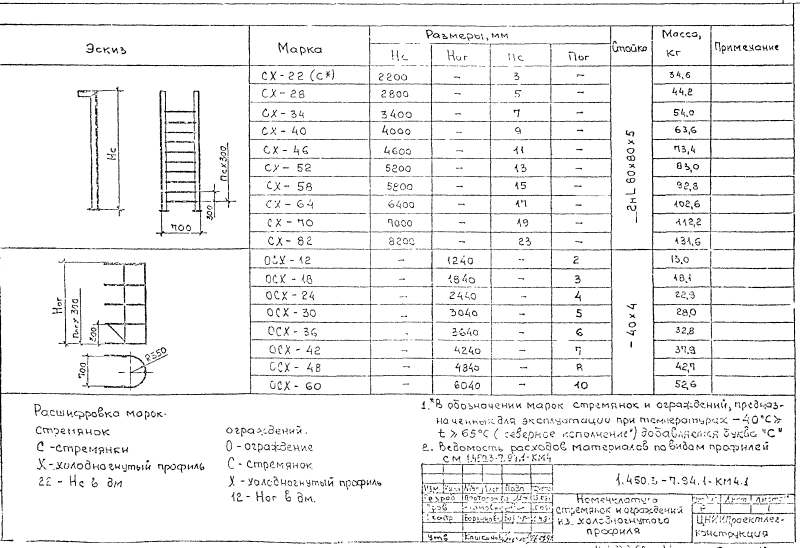 Эскиз Марка Размеры, мм Стойка Масса, кг Примечание
Нс Ног Пс Пог
СХ-22 (С*) 2200 – 3 34,6
СХ-28 2800 – 5 44,2
СХ-34 3400 – 7 54,0
СХ-40 4000 – 9 63,6
СХ-46 4600 – 11 73,4
СХ-52 5200 – 13 83,0
СХ-58 5800 – 15 92,8
СХ-64 6400 – 17 102,6
СХ-70 7000 – 19 112,2
СХ-82 8200 – 23 131,6
2нL 80х80х5
Нс
Псх300
300
700
ОСХ-12 – 1240 – 2 13,0
ОСХ-18 – 1840 – 3 18,1
ОСХ-24 – 2440 – 4 22,9
ОСХ-30 – 3040 – 5 28,0
ОСХ-36 – 3640 – 6 32,8
ОСХ-42 – 4240 – 7 37,9
ОСХ-48 – 4840 – 8 42,7
ОСХ-60 – 6040 – 10 52,6
– 40х4
Ног
300
700
R350
Расшифровка марок.
Стремянок
С -стремянки
Х-холодногнутый профиль
22 - Нс в дм
ограждений.
О-ограждение
С-стремянок
Х-холодногнутый профиль
12-Ног в дм.
1.*В обозначении марок стремянок и ограждений, предназ-
наченных для эксплуатации при температурах -40°С≥
t ≥ 65°С ("северное исполнение") добавляется буква "С"
2. Ведомость расходов материалов по видам профилей
см 1.450.3-7.94.1-КМ4
1.450.3-7.94.1-КМ4.1
Номенклатура
стремянок и ограждений
из холодногнутого
профиля
Лист Листов
ЦНИИПроектлег-
конструкция
Утв